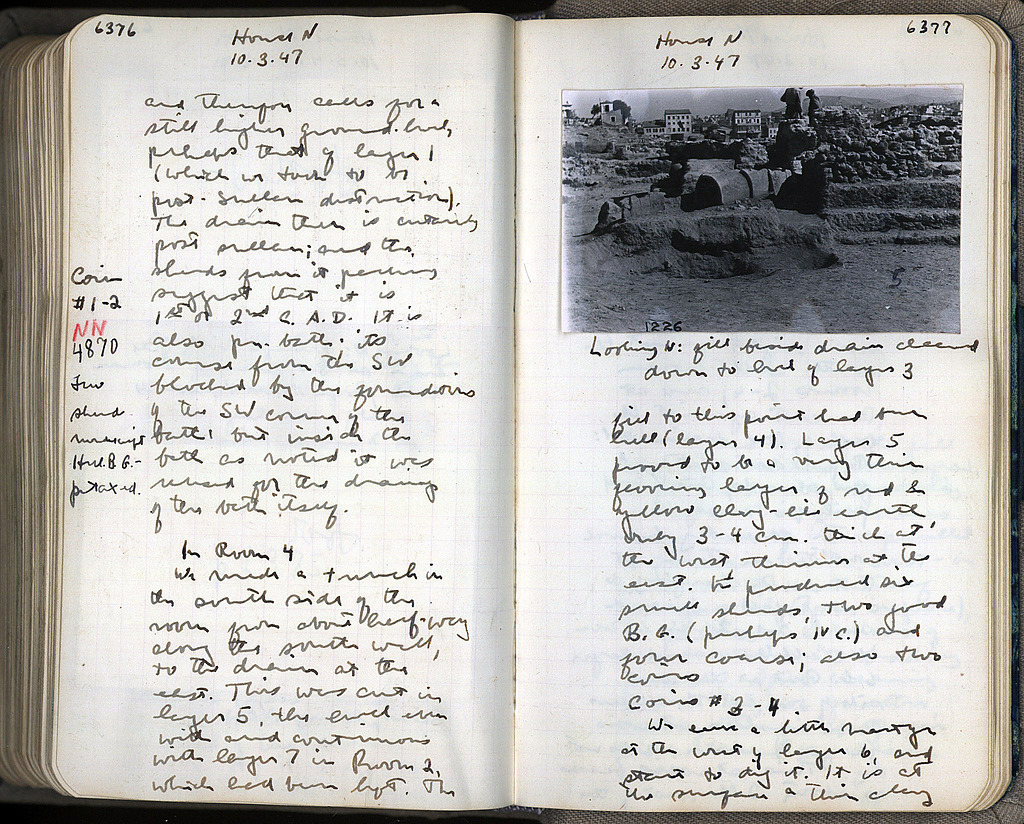 6376
House N
10.3.47
and therefore calls for a
still higher ground level,
perhaps that of layer 1
(which we took to be
post-Sullan destruction).
The drain then is entirely
post sullan; and the
sherds from it
suggest that it is
1st or 2nd C. A.D. It is
also pre-bath: its
course from the SW
blocked by the foundations
of the SW corner of the
bath: but inside the
bath as noted it was
reused for the drainage
of the bath itself.
Coin
#1-2
NN
4870
Few
sherd
nondescript
Hell. B.G.-
In Room 4
We made a trench in
the south side of the
room from about half-way
along the south wall,
to the drain at the
east. This was cut in
layer 5, the level even
with and continuous
with layer 7 in Room 2,
which had been kept. The
6377
House N
10.3.47
5
1226
Looking W: fill beside drain cleared
down to level of layer 3
fill to this point had been
Hell (layer 4). Layer 5
proved to be a very thin
flooring layer of red &
yellow clay-like earth,
only 3-4 cm. thick at
the west thinner at the
east. It produced six
small sherds, two good
B.G. (perhaps IV C.) and
four coarse; also two
coins
Coins #3-4.
We save a little
at the west of layer 6, and
start to dig it. It is at
the surface a thin clay